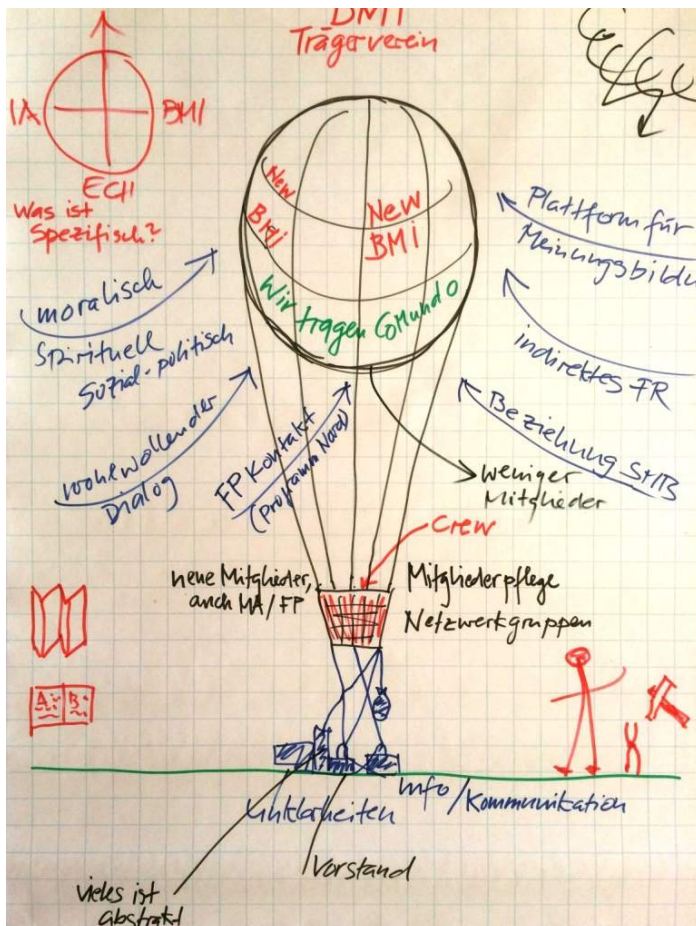 BMI
Trägerverein
IA
BMI
ECH
Was ist
Spezifisch?
New
BMI
New
BMI
Wir tragen COMUNDO
moralisch
Spirituell
Sozial-politisch
wohlwollender
Dialog
FP Kontakt
(Programm Nord)
Plattform für
Meinungsbildu
indirektes FR
Beziehung SMB
weniger
Mitglieder
Crew
neue Mitglieder,
auch MA/FP
Mitgliederpflege
Netzwerkgruppen
A
B
Unklarheiten
Info/Kommunikation
Vorstand
vieles ist
abstrakt